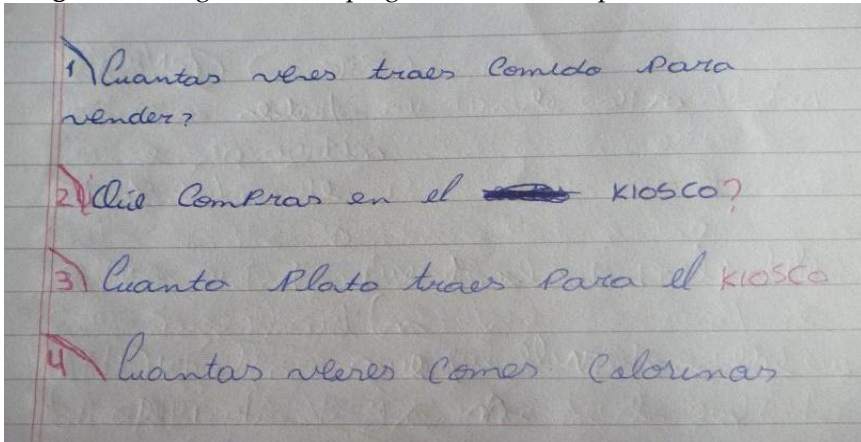 1) Cuantas veres traes Comido Para
vender?
2) Que Compras en el KIOSCO?
3) Cuanto Plato traes Para el KIOSCO
4) Cuantas veeres Comes Calorinas